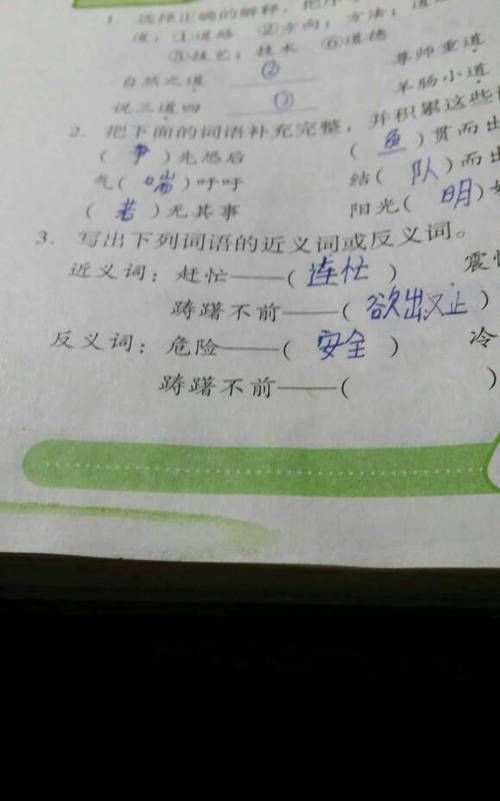 1 选择正确的解释，把序
道：①道路 ②方向；方法；道
⑤技艺；技术 ⑥道德
自然之道 ② 尊师重道
说三道四 ③ 羊肠小道
2. 把下面的词语补充完整，并积累这些
( 争 )先恐后 ( 鱼 )贯而出
气( 喘 )吁吁 结( 队 )而出
( 若 )无其事 阳光( 明)
3. 写出下列词语的近义词或反义词。
近义词：赶忙——( 连忙 ) 震
踌躇不前——( 欲出又止 )
反义词：危险——( 安全 ) 冷
踌躇不前——( )